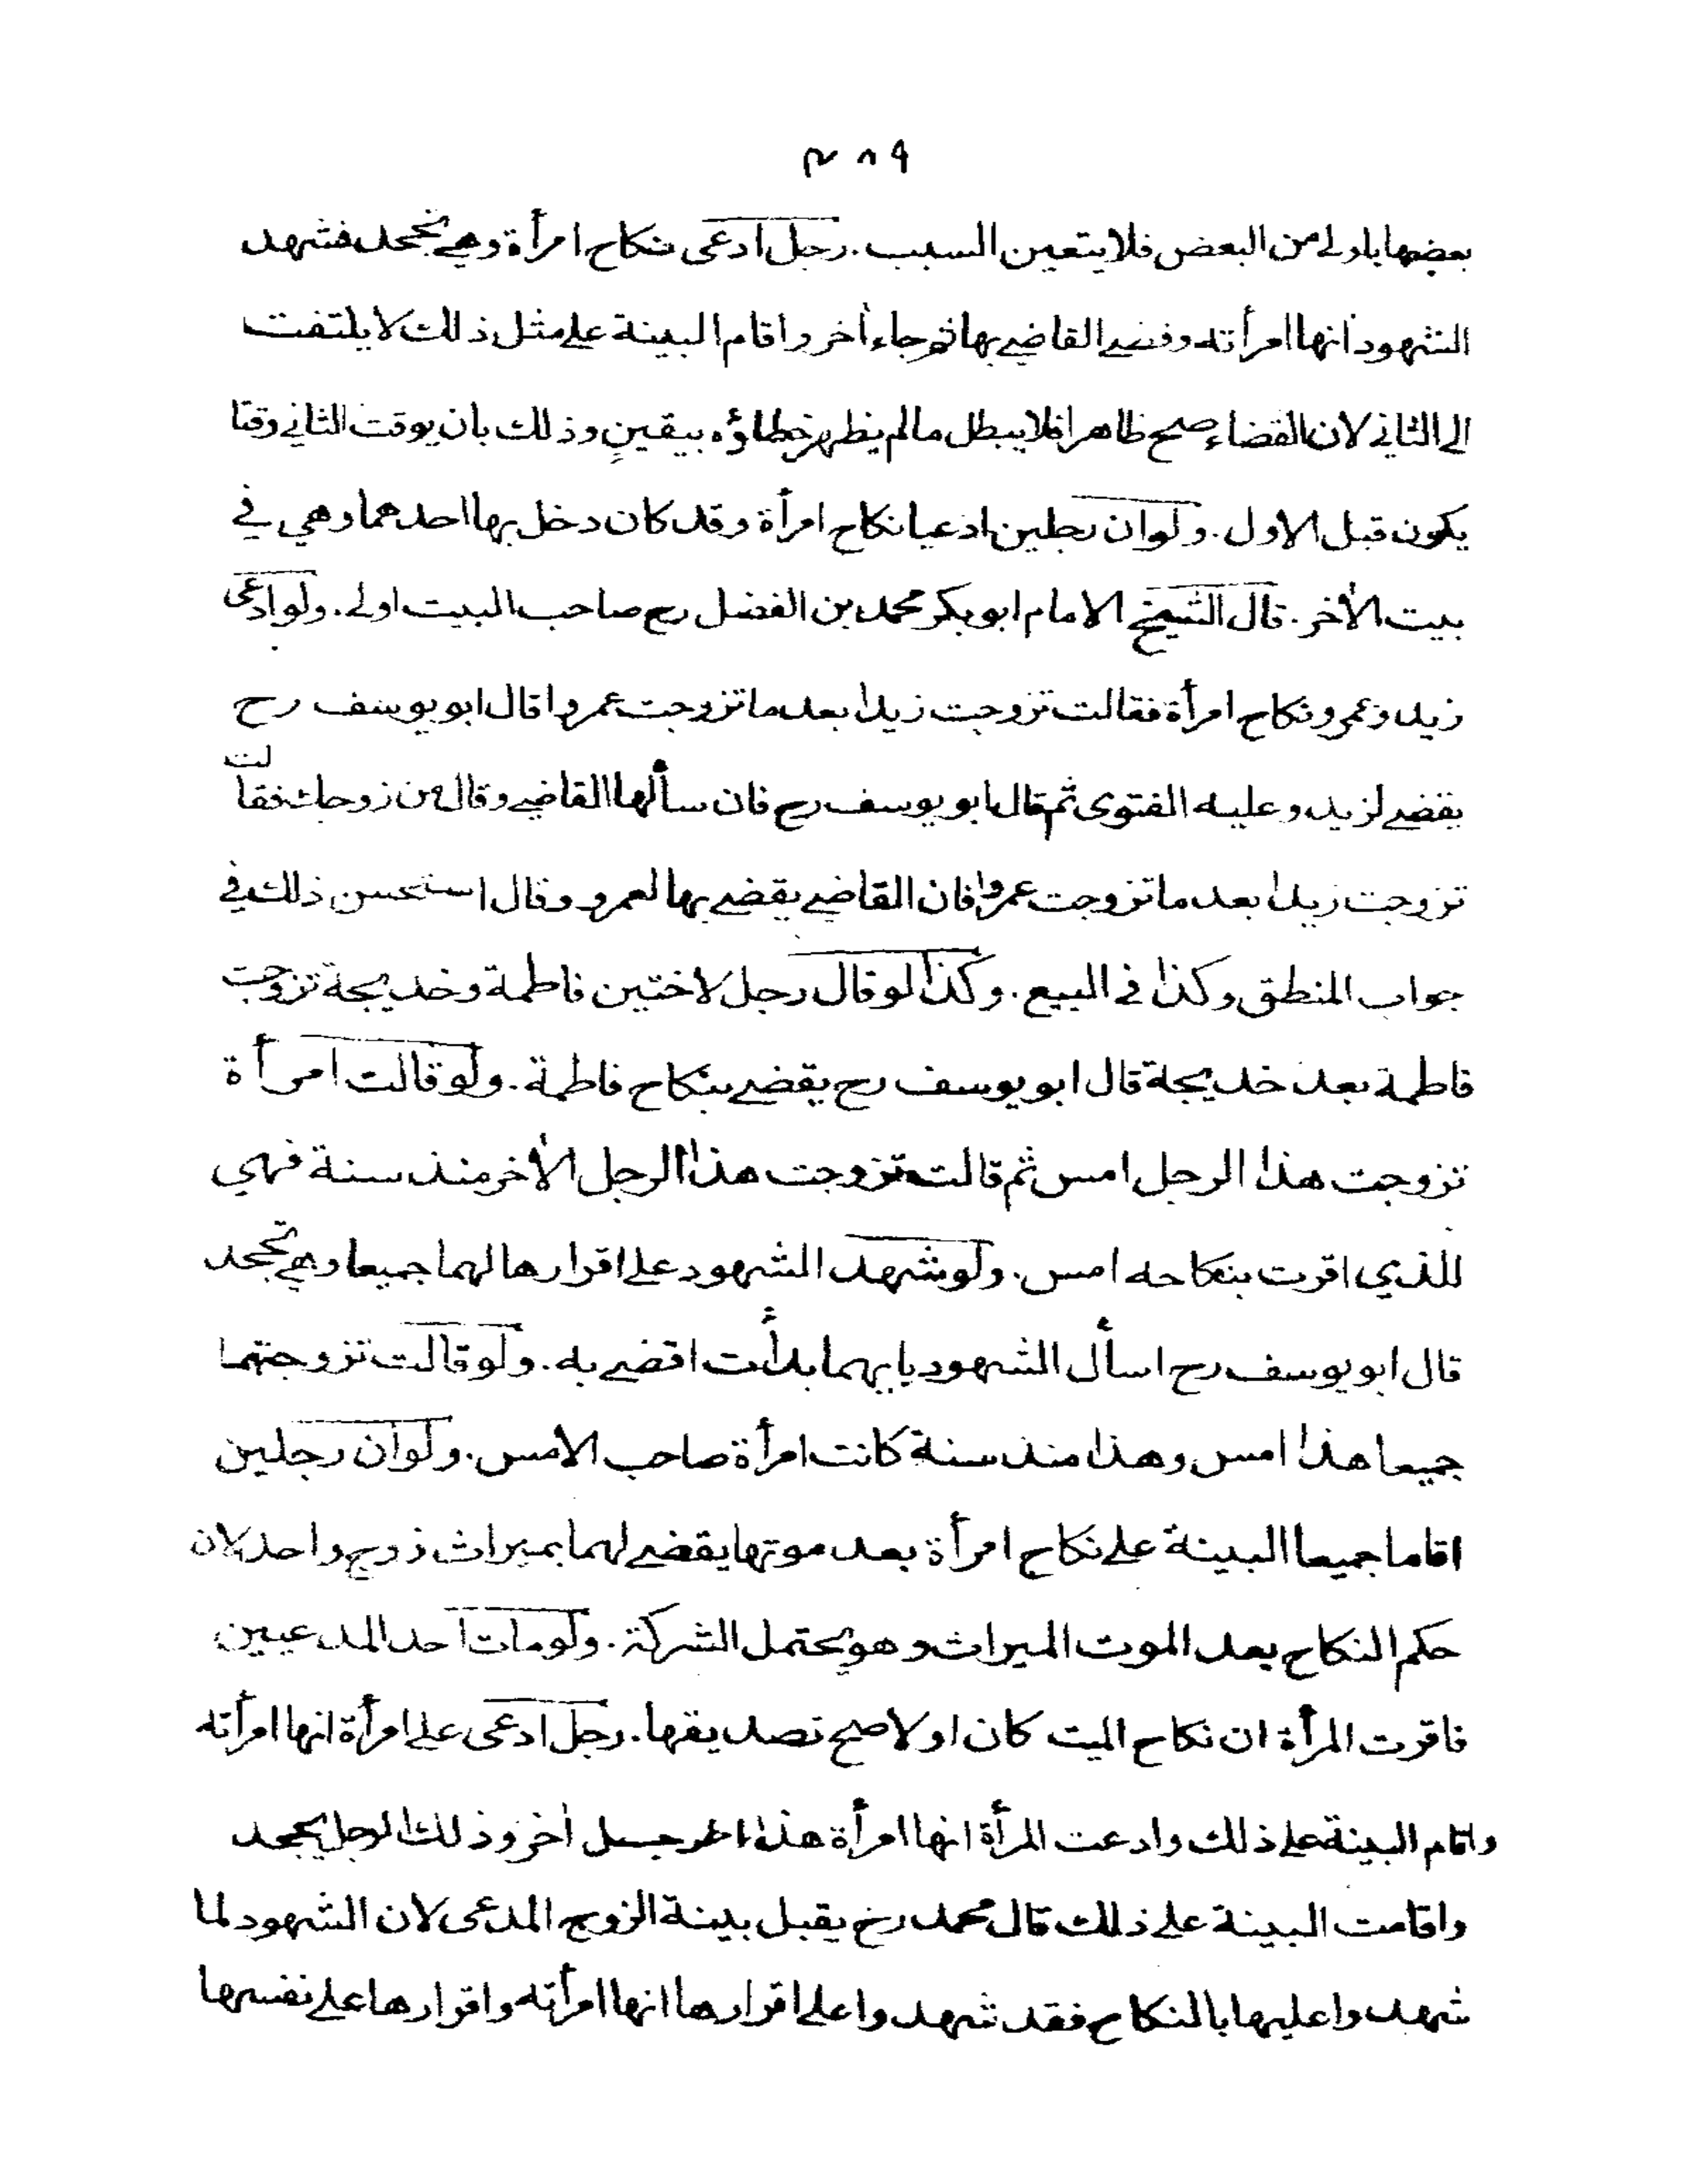 ٤٨٩
بعضها باولى من البعض فلا يتعين السبب. رجل ادعى نكاح امرأة وهي تجحد فشهد
الشهود انها امرأته وقضى القاضي بها ثم جاء اٰخر واقام البينة على مثل ذلك لا يلتفت
الى الثاني لان القضاء صح ظاهرا فلا يبطل مالم يظهر خطاؤه بيقينٍ وذلك بان يوقت الثاني وقتا
يكون قبل الاول. ولو ان رجلين ادعيا نكاح امرأة وقد كان دخل بها احدهما وهي في
بيت الاٰخر. قال الشيخ الامام ابو بكر محمد بن الفضل رح صاحب البيت اولى. ولو ادعى
زيد وعمرو نكاح امرأة فقالت تزوجت زيدا بعد ما تزوجت عمروا قال ابو يوسف رح
يقضى لزيد وعليه الفتوى ثم قال ابو يوسف رح فان سألها القاضي وقال من زوجك فقالت
تزوجت زيدا بعد ما تزوجت عمروا فان القاضي يقضي بها لعمرو وقال استحسن ذلك في
جواب المنطق وكذا في البيع. وكذا لو قال رجل لاختين فاطمة وخديجة تزوجت
فاطمة بعد خديجة قال ابو يوسف رح يقضى بنكاح فاطمة. ولو قالت امرأة
تزوجت هذا الرجل امس ثم قالت تزوجت هذا الرجل الاٰخر منذ سنة فهي
للذي اقرت بنكاحه امس. ولو شهد الشهود على اقرارها لهما جميعا وهي تجحد
قال ابو يوسف رح اسأل الشهود بايهما بدأت اقضي به. ولو قالت تزوجتهما
جميعا هذا امس وهذا منذ سنة كانت امرأة صاحب الامس. ولو ان رجلين
اقاما جميعا البينة على نكاح امرأة بعد موتها يقضى لهما بميراث زوج واحد لان
حكم النكاح بعد الموت الميراث وهو يحتمل الشركة. ولو مات احد المدعيين
فاقرت المرأة ان نكاح الميت كان اولا صح تصديقها. رجل ادعى على امرأة انها امرأته
واقام البينة على ذلك وادعت المرأة انها امرأة هذا الرجل اٰخر وذلك الرجل يجحد
واقامت البينة على ذلك قال محمد رح يقبل بينة الزوج المدعى لان الشهود لما
شهدوا عليها بالنكاح فقد شهدوا على اقرارها انها امرأته واقرارها على نفسها